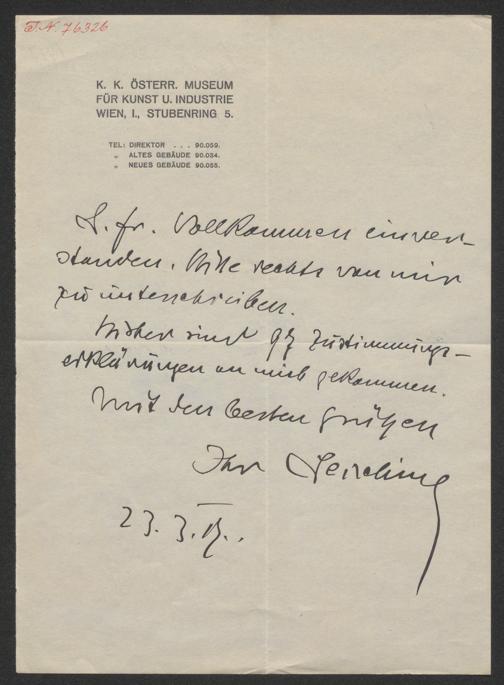 I.N. 76326
K. K. ÖSTERR. MUSEUM
FÜR KUNST U. INDUSTRIE
WIEN, I., STUBENRING 5.
TEL: DIREKTOR . . . 90.059.
„ ALTES GEBÄUDE 90.034.
„ NEUES GEBÄUDE 90.055.
L. fr. Vollkommen einver-
standen. Bitte rechts von mir
zu unterschreiben.
Bisher sind 97 Zustimmungs-
erklärungen an mich gekommen.
Mit den besten Grüßen
Ihr Leisching
23. 3.